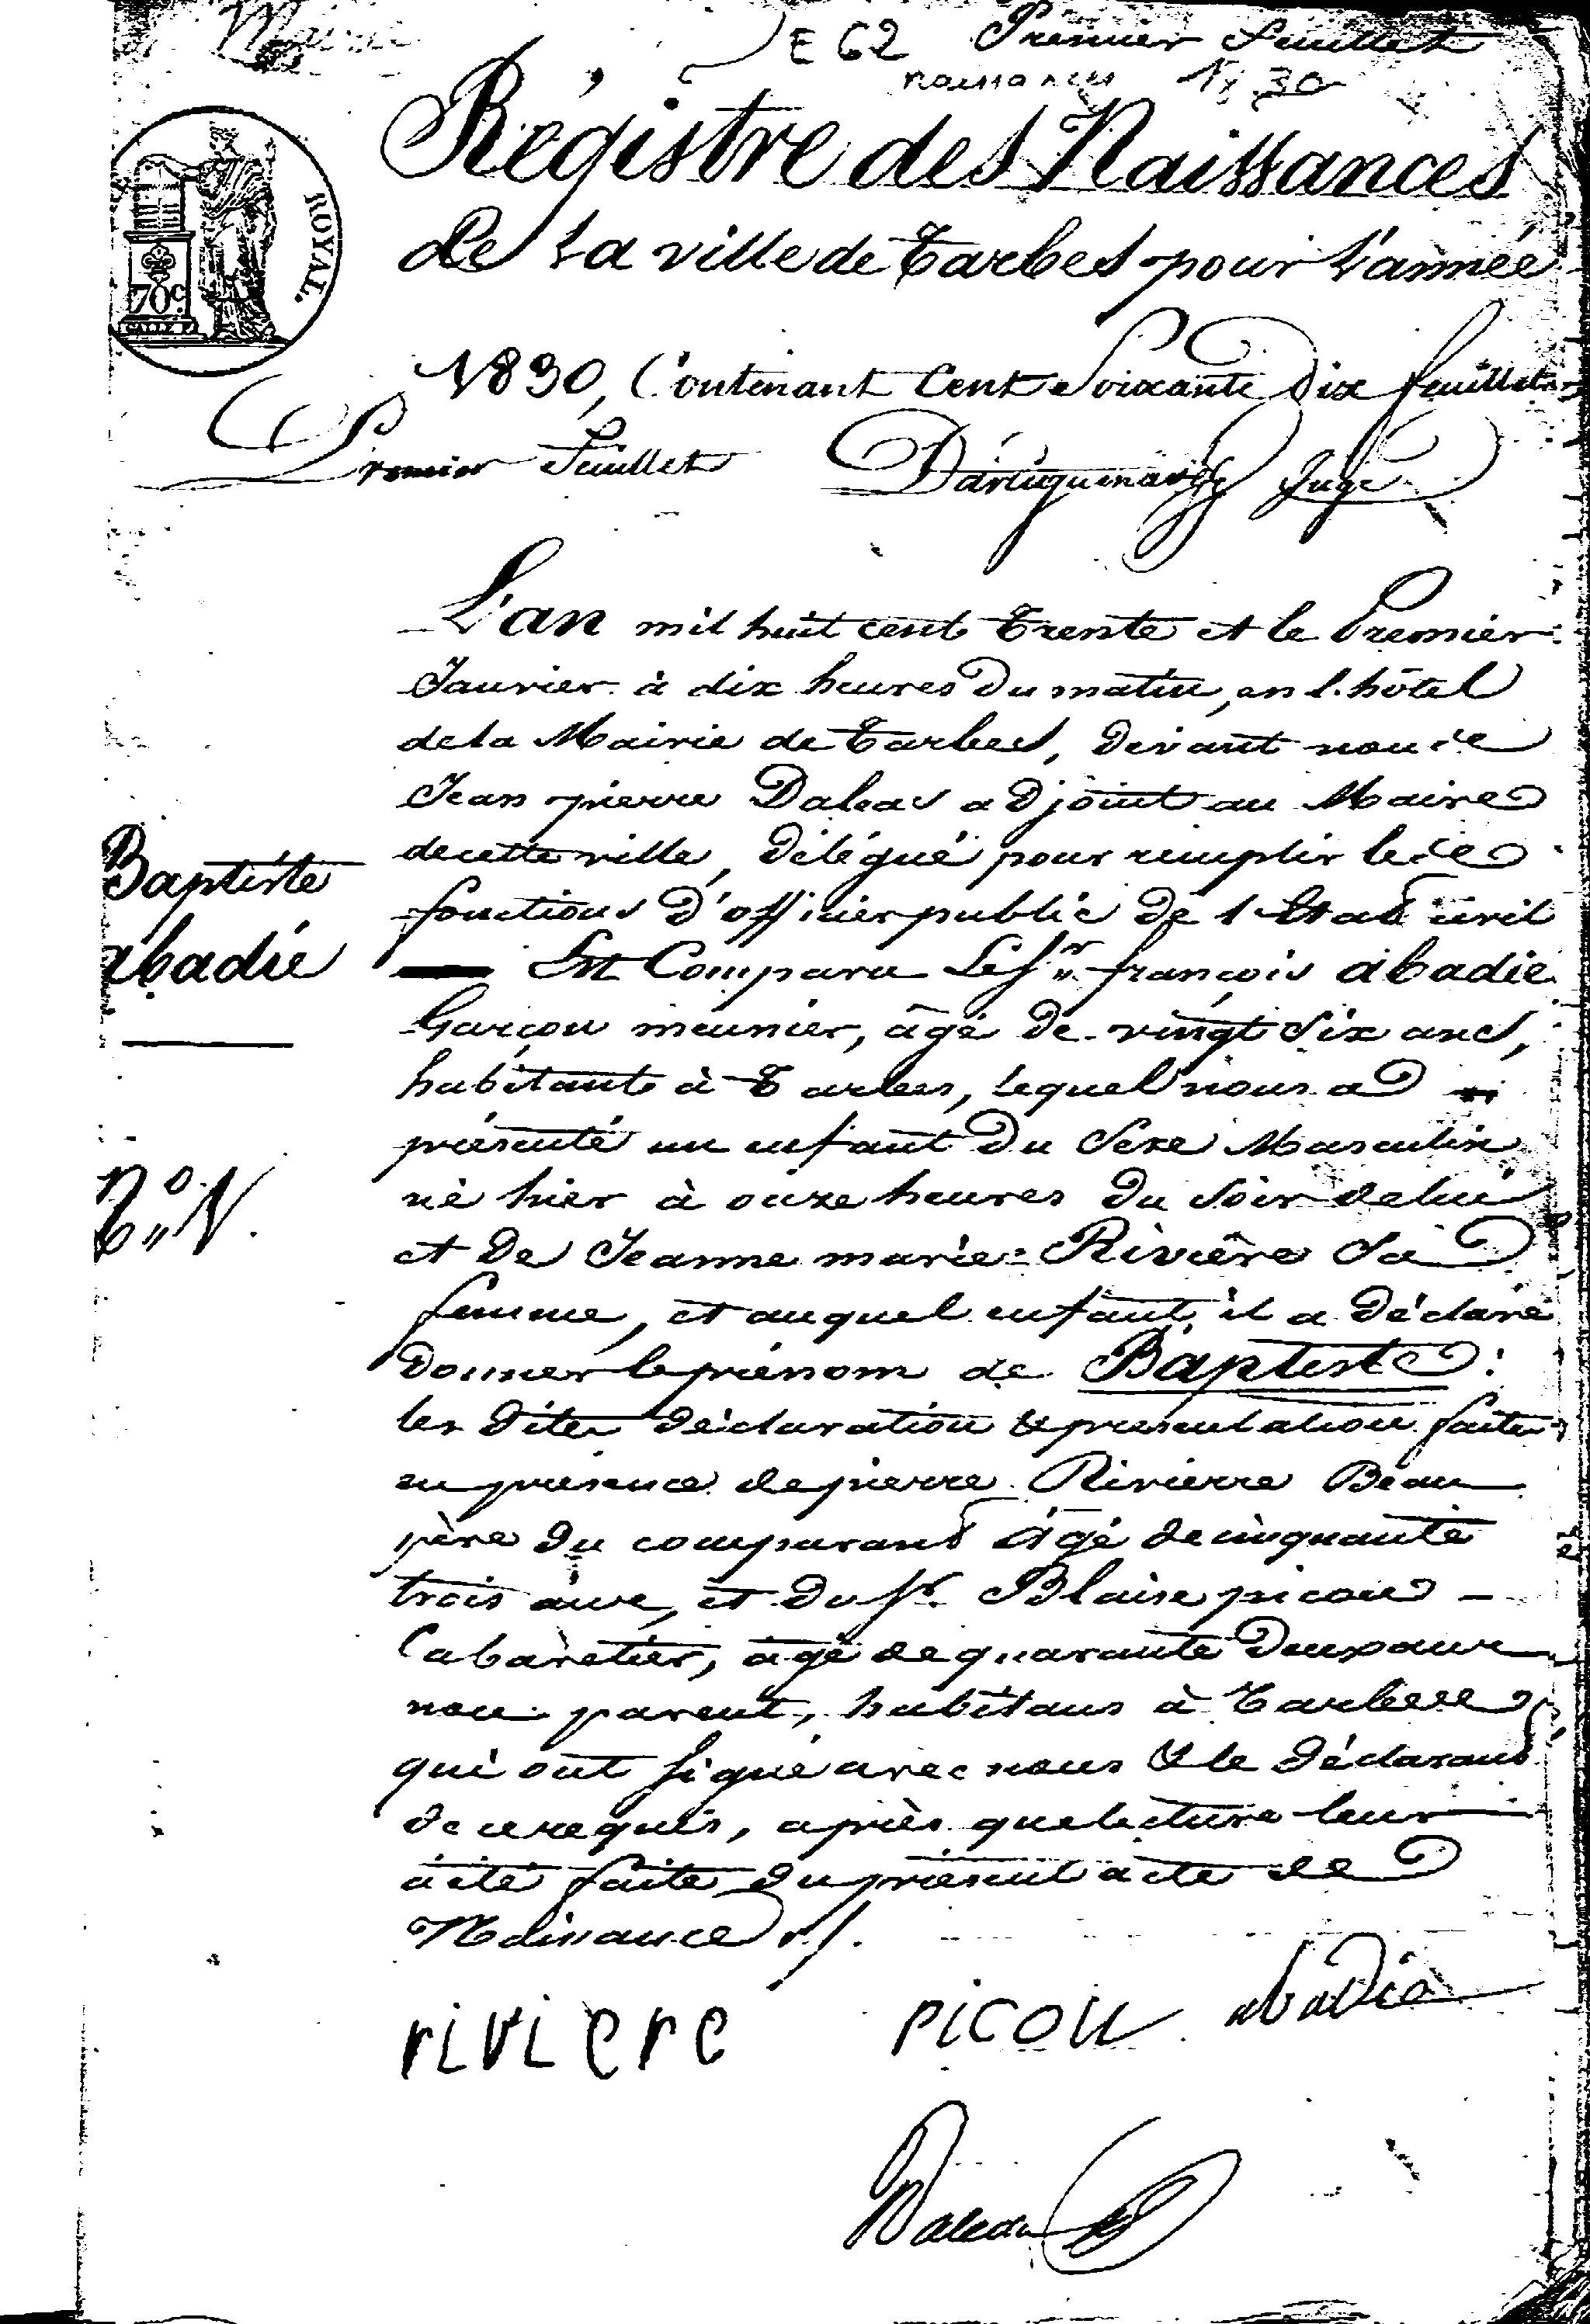 Mairie
E 62 Premier feuillet
naissances 1830
Régistre des Naissances
de La ville de Tarbes pour L'année
ROYAL.
70c.
1830, Contenant Cent Soixante Dix feuillets
Premier feuillet Juge
L'an mil huit cent Trente et le Premier
Janvier à dix heures Du matin, en l'hôtel
de la Mairie de Tarbes, Devant nous
Jean pierre Daleas adjoint au Maire
de cette ville, Délégué pour remplir les
fonctions D'officier public De l'Etat civil
Est Comparu Le Sr. françois abadie
Garçon meunier, âgé De vingt Six ans,
habitant à Tarbes, lequel nous a
présenté un enfant Du Sexe Masculin
né hier à onze heures Du Soir de lui
et De Jeanne marie Rivière Sa
femme, et auquel enfant il a Déclaré
Donner le prénom de Baptiste:
les Dites Déclaration & présentation faites
en présence de pierre Rivierre Beau
père Du comparant âgé de cinquante
trois ans, et Du Sr. Blaise picou
Cabaretier, âgé de quarante Deux ans
non parent, habitans à Tarbes
qui ont signé avec nous & le Déclarant
De ce requis, après que lecture leur
a été faite Du présent acte de
Naissance ./.
Baptiste
abadie
No. 1.
riviere PICOU abadie
Daleas